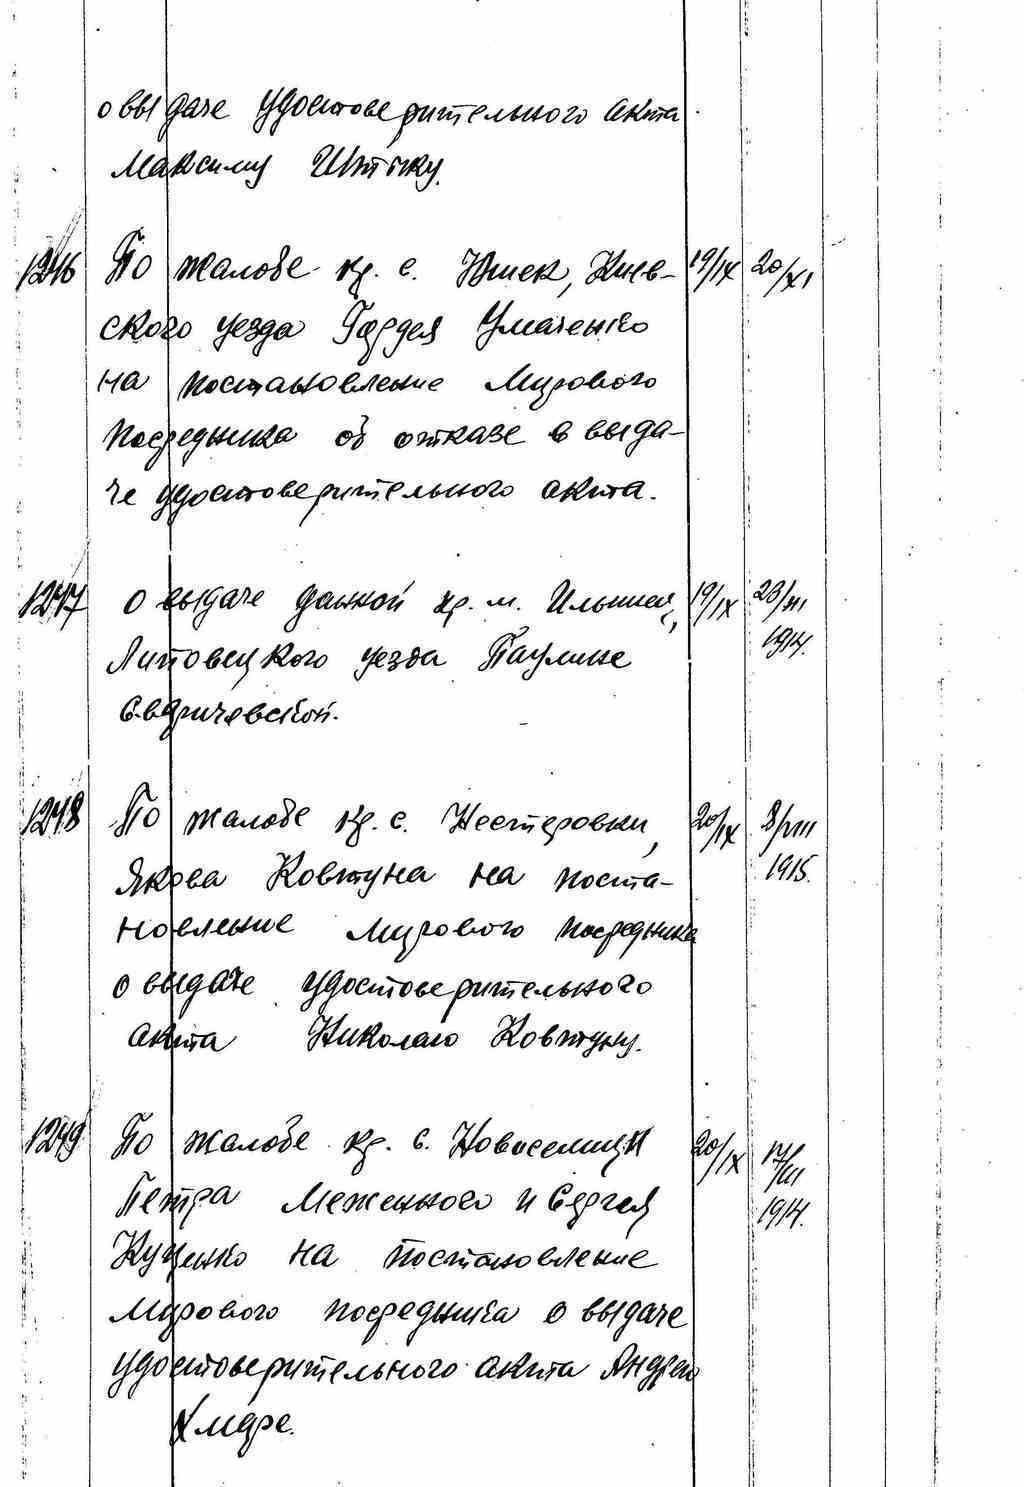 о выдаче удостоверительного акта
Максиму Штыку.
1246 По жалобе кр. с. Юшек, Киев- 19/IX 20/XI
ского уезда Гордея Умаченко
на постановление Мирового
Посредника об отказе в выда-
че удостоверительного акта.
1247 О выдаче данной кр. м. Ильинец, 19/IX 23/XI
Липовецкого уезда Паулине 1914.
Сваричевской.
1248 По жалобе кр. с. Нестеровки, 20/IX 8/VIII
Якова Ковтуна на поста- 1915.
новление мирового посредника
о выдаче удостоверительного
акта Николаю Ковтуну.
1249 По жалобе кр. с. Новоселицы 20/IX 17/III
Петра Меженного и Сергея 1914.
Куценко на постановление
мирового посредника о выдаче
удостоверительного акта Андрею
Хмаре.